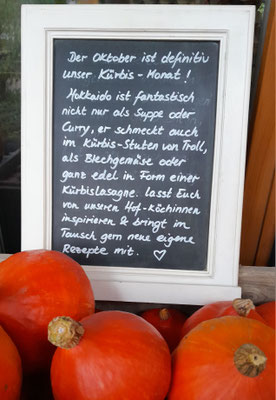 Der Oktober ist definitiv
unser Kürbis-Monat!
Hokkaido ist fantastisch
nicht nur als Suppe oder
Curry, er schmeckt auch
im Kürbis-Stuten von Troll,
als Blechgemüse oder
ganz edel in Form einer
Kürbislasagne. lasst Euch
von unseren Hof-Köchinnen
inspirieren & bringt im
Tausch gern neue eigene
Rezepte mit. ♡